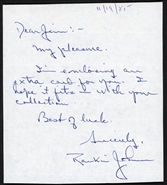 11/19/85
Dear Jim:-
My pleasure.
I'm enclosing an
extra card for you. I
hope it fits in with your
collection
Best of luck.
Sincerely,
John